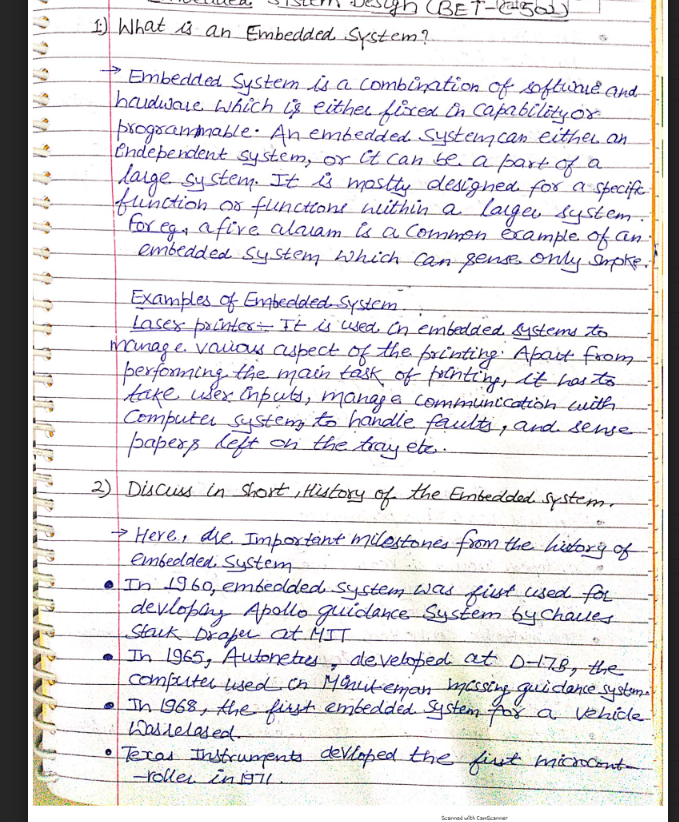 Embedded System Design (BET-C-502)
1) What is an Embedded System?
→ Embedded System is a combination of software and
hardware which is either fixed in capability or
programmable. An embedded system can either an
independent system, or it can be a part of a
large system. It is mostly designed for a specific
function or functions within a larger system.
For eg., a fire alaram is a common example of an
embedded system which can sense only smoke.
Examples of Embedded System
Laser printer:- It is used in embedded systems to
manage various aspect of the printing. Apart from
performing the main task of printing, it has to
take user inputs, manage communication with
computer system, to handle faults, and sense
papers left on the tray etc.
2) Discuss in short, History of the Embedded system.
→ Here, are Important milestones from the history of
embedded system
• In 1960, embedded system was first used for
devloping Apollo guidance System by Charles
Stark Draper at MIT
• In 1965, Autonetics, developed at D-17B, the
computer used in Minuteman missing guidance system.
• In 1968, the first embedded system for a vehicle
was relased.
• Texas Instruments devloped the first microcont-
-roller in 1971.
Scanned with CamScanner